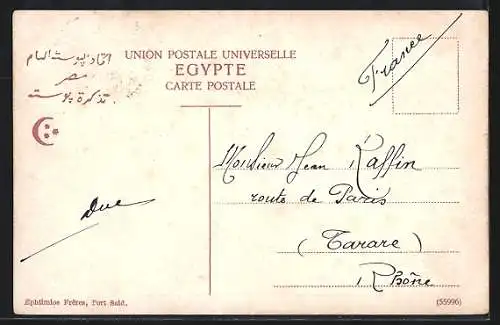 اتحاد پوسته العام
UNION POSTALE UNIVERSELLE
مصر
EGYPTE
تذكرة پوسته
CARTE POSTALE
France
Monsieur Jean Raffin
route de Paris
(Tarare)
Rhône
Ephtimios Frères, Port Said.
(55996)